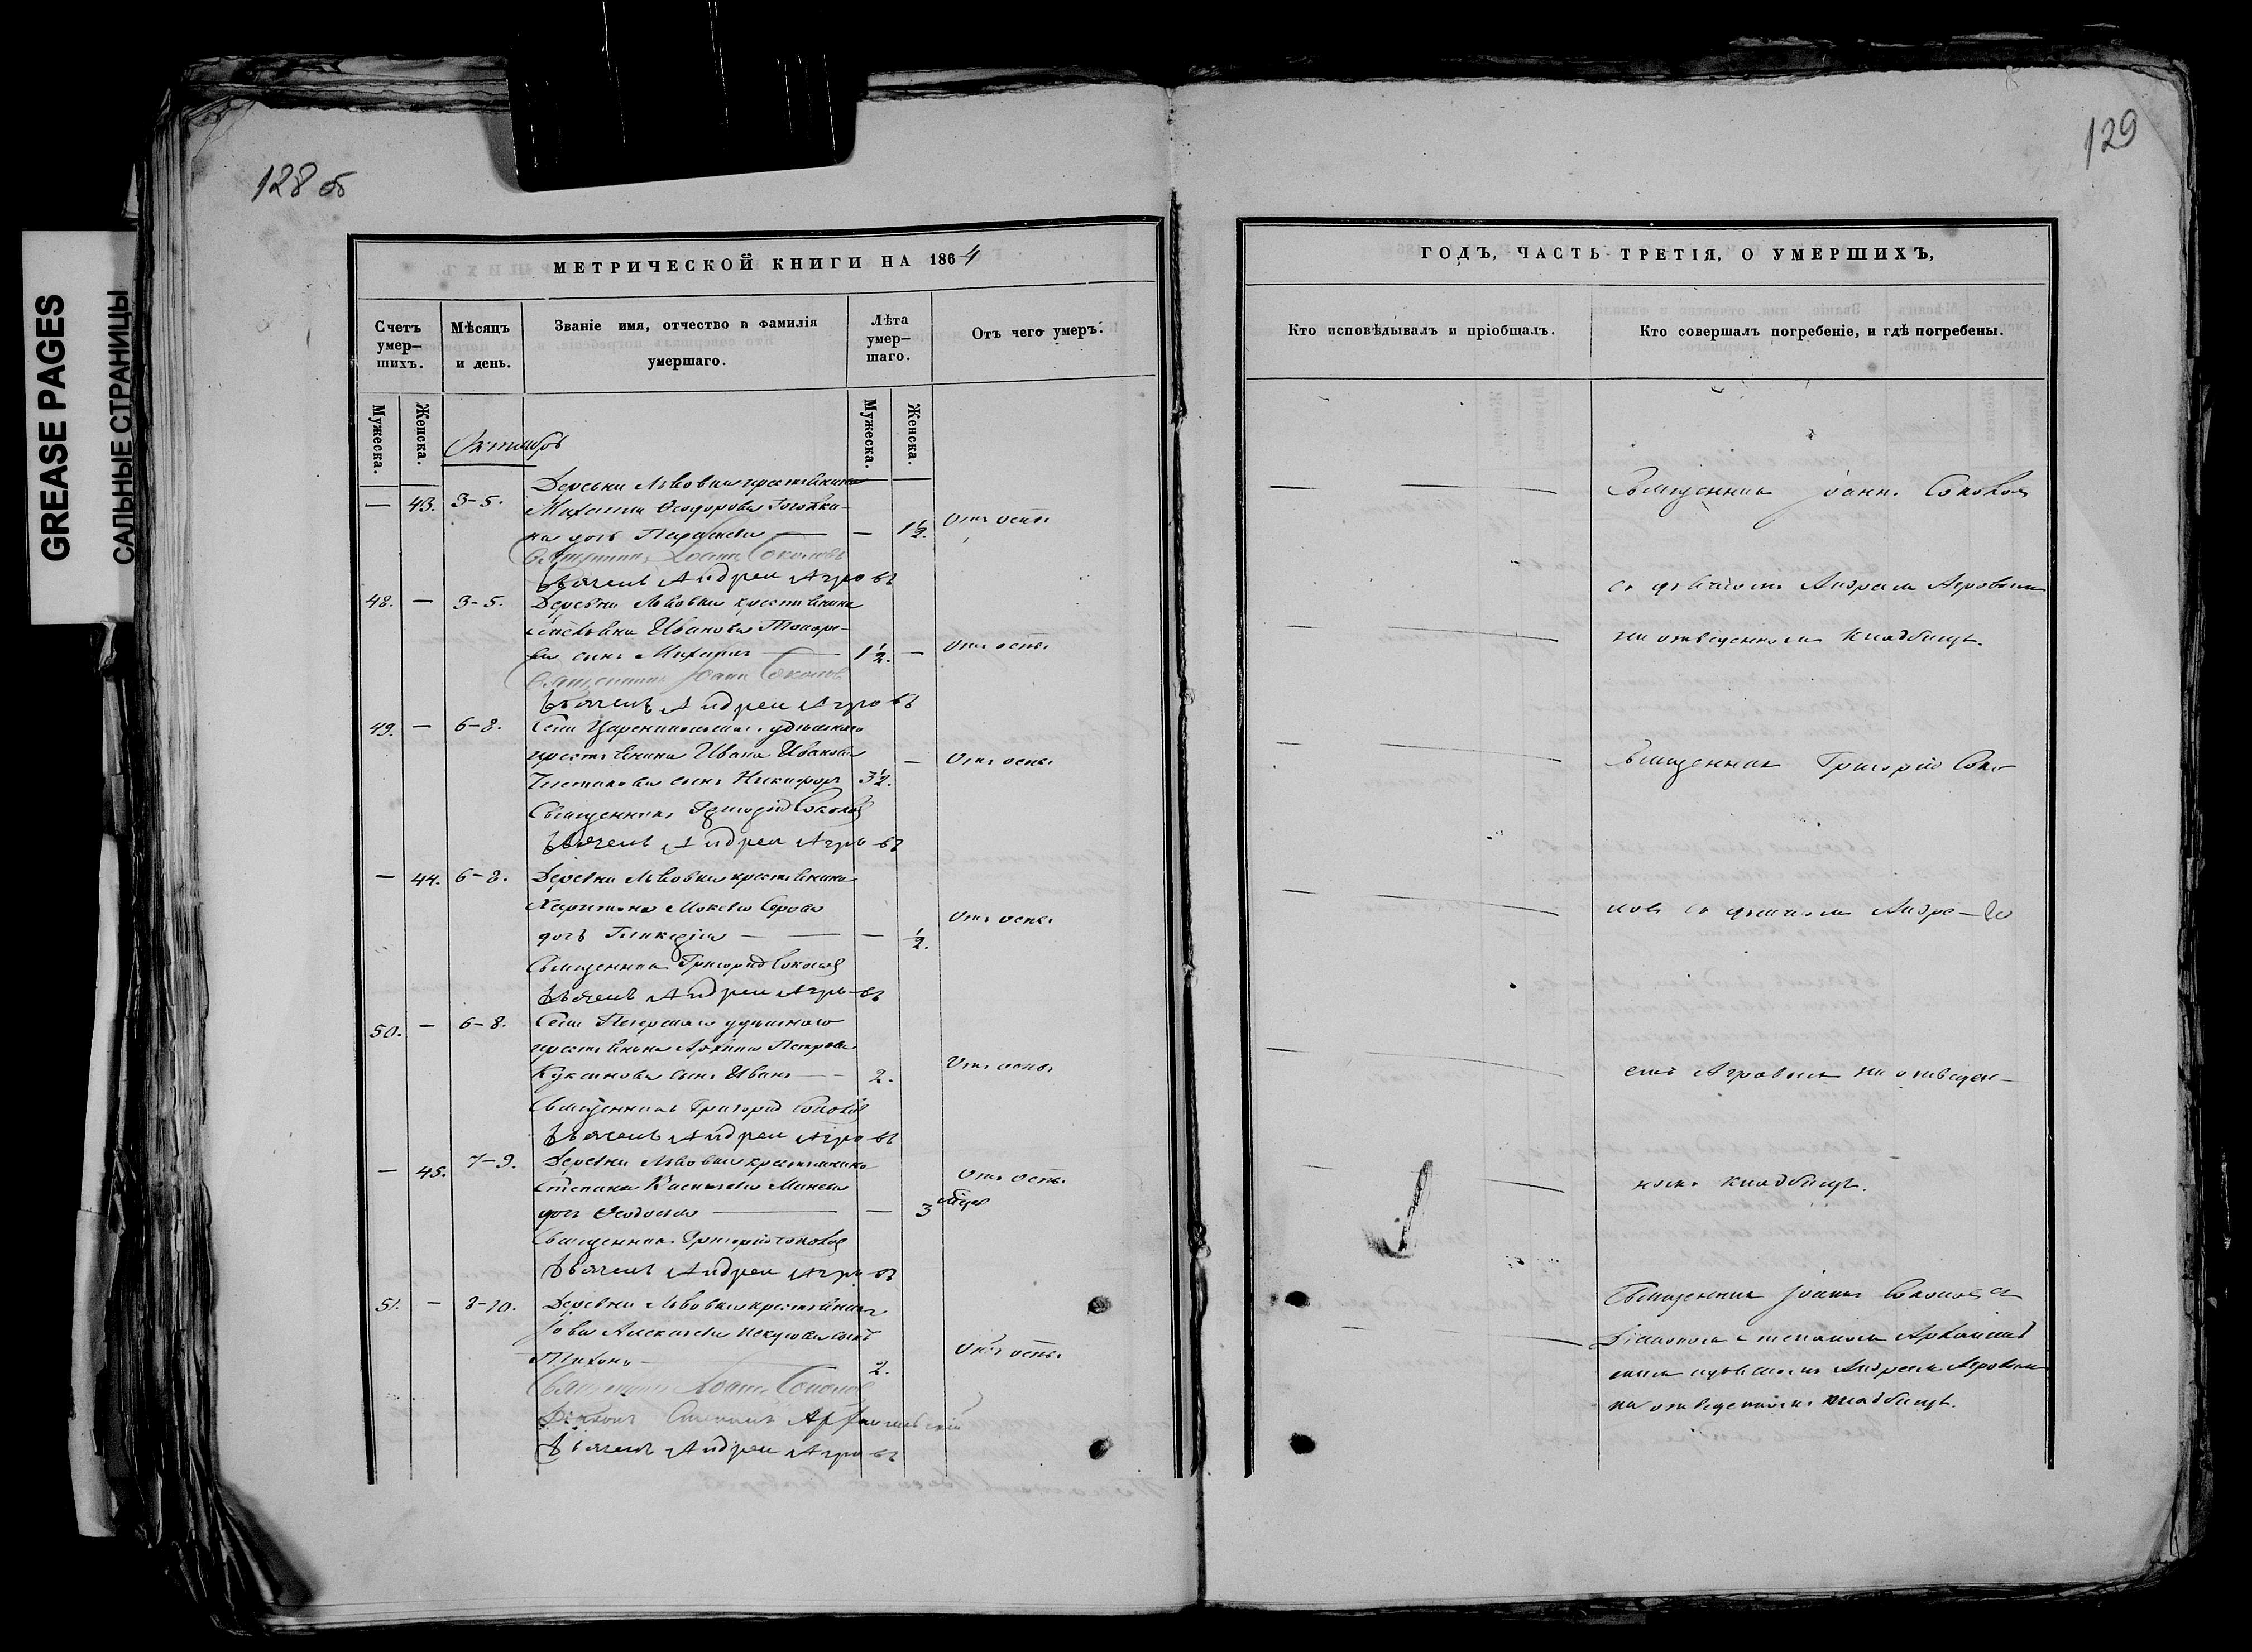 GREASE PAGES
САЛЬНЫЕ СТРАНИЦЫ
128 об
МЕТРИЧЕСКОЙ КНИГИ НА 1864
Счетъ умер—шихъ.
Мѣсяцъ и день.
Званіе имя, отчество и фамилія умершаго.
Лѣта умер—шаго.
Отъ чего умеръ.
Мужеска.
Женска.
Мужеска.
Женска.
Октябрь
Деревни Львовки крестьянина
— 43. 3-5. Михаила Ѳеодорова
на дочь Параскева — — 1½. Отъ оспы
Священникъ Іоаннъ Соколовъ
Дьячекъ Андрей Агровъ
48. — 3-5. Деревни Львовки крестьянина
Иванова Токаре-
ва сынъ Михаилъ — 1½. — Отъ оспы
Священникъ Іоаннъ Соколовъ
Дьячекъ Андрей Агровъ
49. — 6-8. Села удѣльнаго
крестьянина Ивана Иванова
сынъ Никифоръ 3½. — Отъ оспы
Священникъ Григорій Соколовъ
Дьячекъ Андрей Агровъ
— 44. 6-8. Деревни Львовки крестьянина
Харитона Мокева Серова
дочь Гликерія — — — ½. Отъ оспы
Священникъ Григорій Соколовъ
Дьячекъ Андрей Агровъ
50. — 6-8. Села удѣльнаго
крестьянина Архипа Петрова
сынъ Иванъ — 2. Отъ оспы
Священникъ Григорій Соколовъ
Дьячекъ Андрей Агровъ
— 45. 7-9. Деревни Львовки крестьянина
Степана Васильева Отъ оспы
дочь Ѳеодосія — — 3 мѣся
Священникъ Григорій Соколовъ
Дьячекъ Андрей Агровъ
51. — 8-10. Деревни Львовки крестьянина
Іова Алексѣева сынъ
Тихонъ — 2. Отъ оспы
Священникъ Іоаннъ Соколовъ
Діаконъ Степанъ Архангельскій
Дьячекъ Андрей Агровъ
129
ГОДЪ, ЧАСТЬ ТРЕТІЯ, О УМЕРШИХЪ,
Кто исповѣдывалъ и пріобщалъ.
Кто совершалъ погребеніе, и гдѣ погребены.
Священникъ Іоаннъ Соколовъ
съ дьячкомъ Андреемъ Агровымъ
на отведенномъ кладбищѣ.
Священникъ Григорій Соко-
ловъ съ дьячкомъ Андре-
емъ Агровымъ на отведен-
номъ кладбищѣ.
Священникъ Іоаннъ Соколовъ съ
Діакономъ Степаномъ Архангель
скимъ и дьячкомъ Андреемъ Агровымъ
на отведенномъ кладбищѣ.